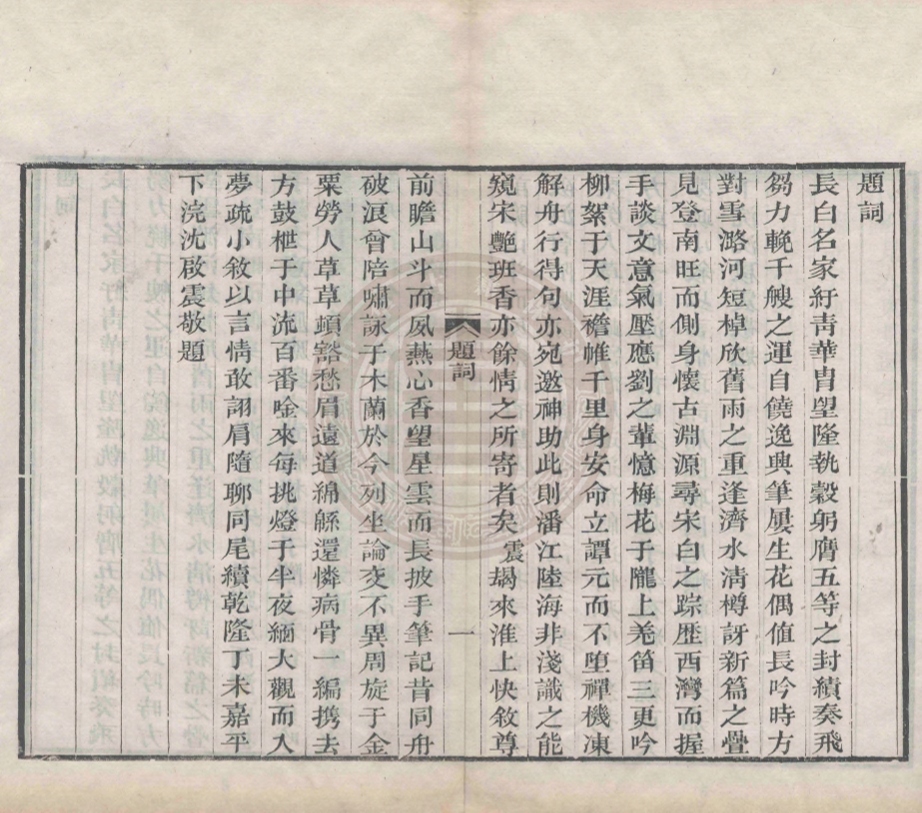 題詞
長白名家紆靑華胄朢隆執糓躬膺五等之封績奏飛
芻力輓千艘之運自饒逸興筆屢生花偶值長吟時方
對雪潞河短棹欣舊雨之重逢濟水淸樽訝新篇之疊
見登南旺而側身懷古淵源尋宋白之踪歴西灣而握
手談文意氣壓應劉之輩憶梅花于隴上羌笛三更吟
柳絮于天涯襜帷千里身安命立譚元而不墮禪機凍
解舟行得句亦宛邀神助此則潘江陸海非淺識之能
窺宋艷班香亦餘情之所寄者矣震朅來淮上快敘尊
題詞
一
前瞻山斗而夙燕心香朢星雲而長披手筆記昔同舟
破浪曾陪嘯詠于木蘭於今列坐論交不異周旋于金
粟勞人草草頓豁愁眉遠道綿緜還憐病骨一編携去
方鼓枻于中流百番唫來每挑燈于半夜緬大觀而入
夢疏小敘以言情敢詡肩隨聊同尾續乾隆丁未嘉平
下浣沈啟震敬題